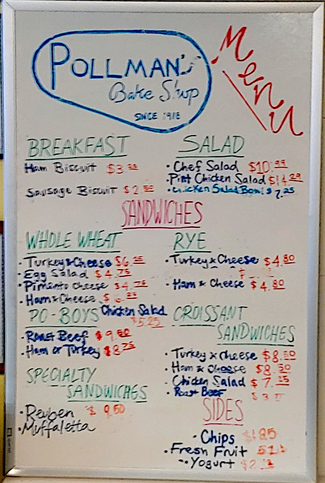 POLLMAN'S
Bake Shop
SINCE 1918
Menu
BREAKFAST
Ham Biscuit $3
Sausage Biscuit $2
SALAD
• Chef Salad $10.99
• Pint Chicken Salad $14.29
• Chicken Salad Bowl $7.25
SANDWICHES
WHOLE WHEAT
• Turkey & Cheese $6
• Egg Salad $4.75
• Pimento Cheese $4.75
• Ham & Cheese $6
Chicken Salad
RYE
• Turkey & Cheese $4.80
• Ham & Cheese $4.80
PO-BOYS
• Roast Beef $9
• Ham or Turkey $8.75
CROISSANT
SANDWICHES
• Turkey & Cheese $8.50
• Ham & Cheese $8.50
• Chicken Salad $7
• Roast Beef
SPECIALTY
SANDWICHES
• Reuben $9.50
• Muffaletta
SIDES
• Chips
• Fresh Fruit
• Yogurt